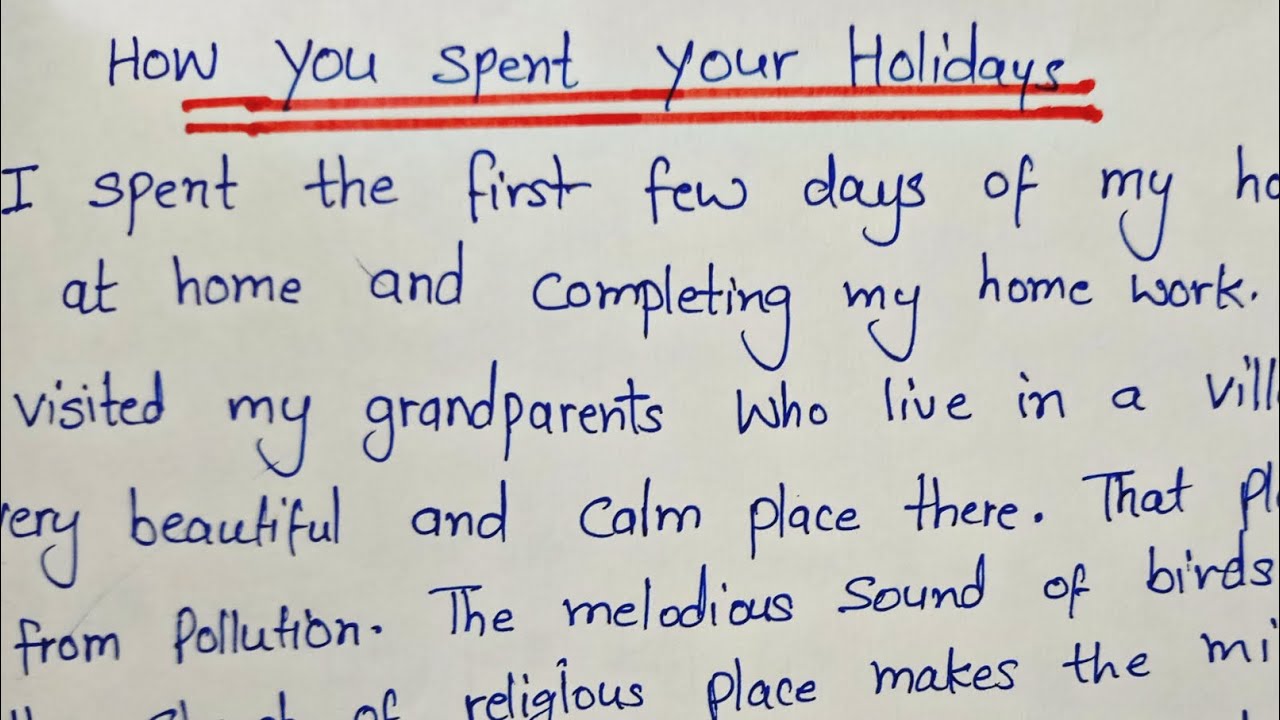 How You spent your Holidays
I spent the first few days of my ho
at home and completing my home work.
visited my grandparents who live in a vill
very beautiful and calm place there. That pl
from Pollution. The melodious sound of birds
of religious place makes the mi